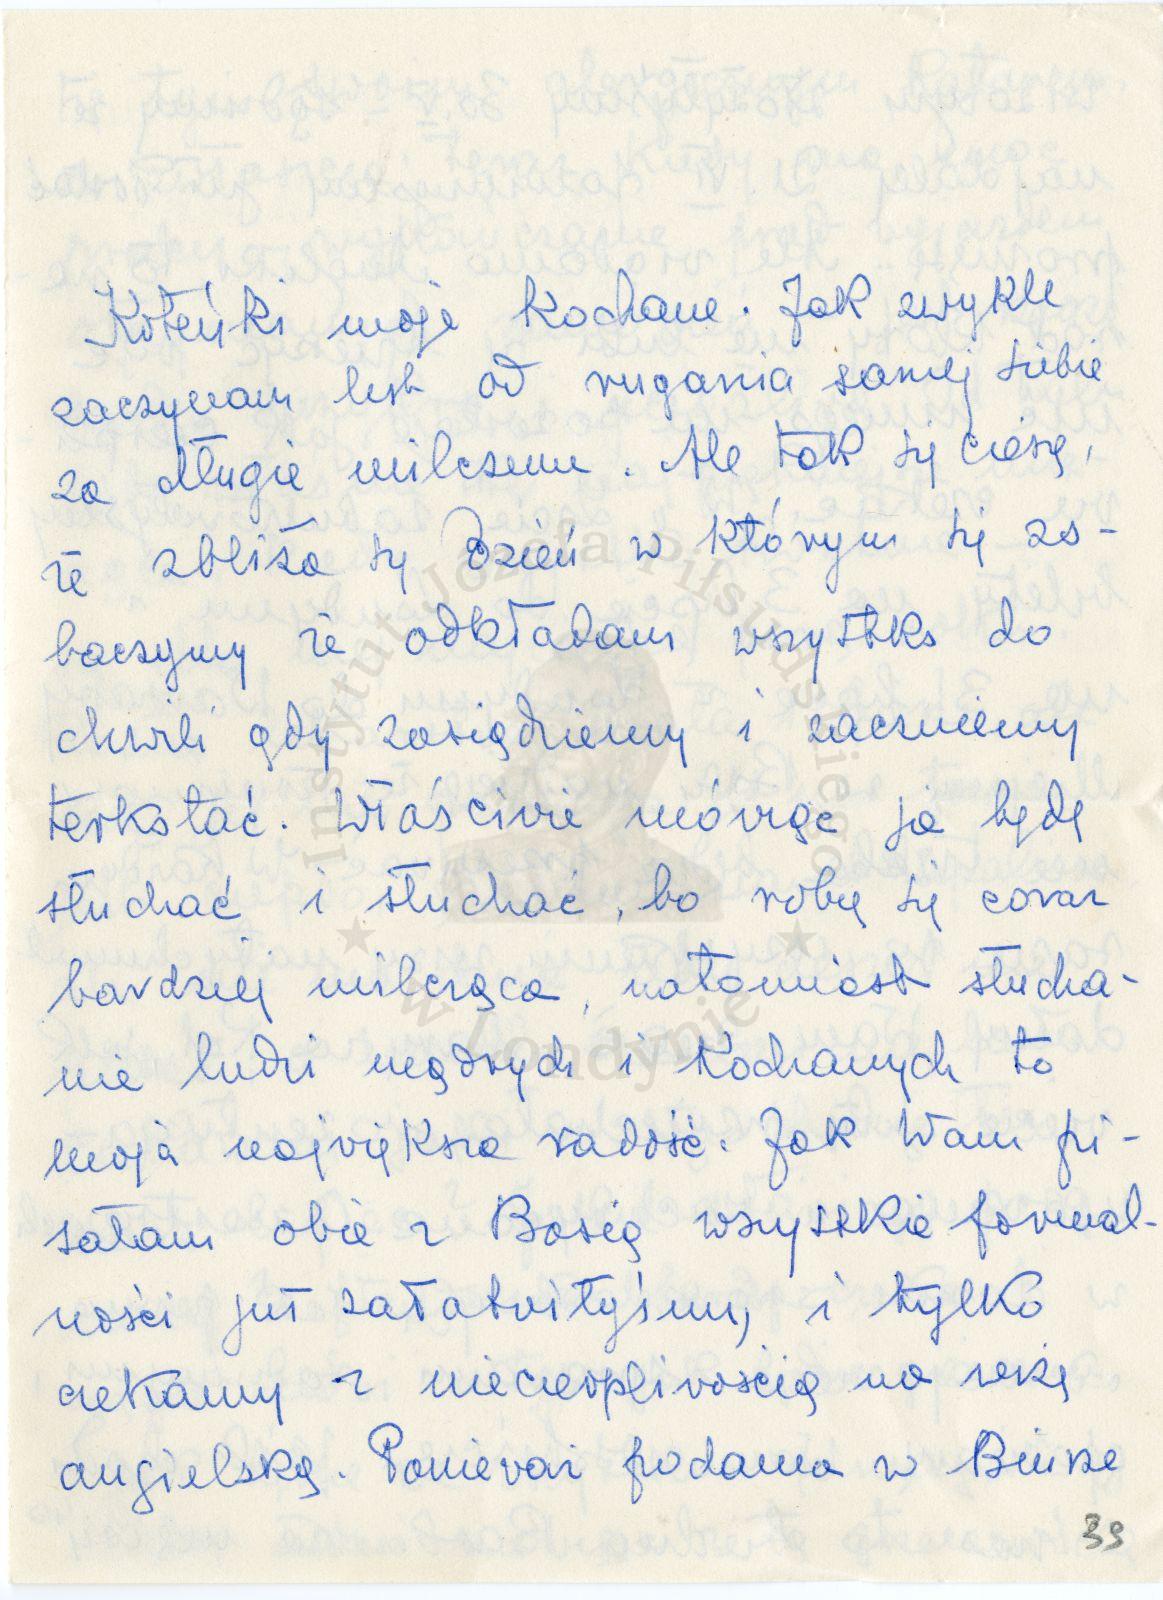 Koteńki moje kochane. Jak zwykle
zaczynam list od rugania samej siebie
za długie milczenie. Ale tak się cieszę,
że zbliża się dzień w którym się zo-
baczymy że odkładam wszystko do
chwili gdy zasiądziemy i zaczniemy
terkotać. Właściwie mówiąc ja będę
słuchać i słuchać, bo robię się coraz
bardziej milcząca, natomiast słucha-
nie ludzi mądrych i kochanych to
moja największa radość. Jak Wam pi-
sałam obie z Basią wszystkie formal-
ności już załatwiłyśmy, i tylko
czekamy z niecierpliwością na wizę
angielską. Ponieważ podanie w Biurze
39
Instytut Józefa Piłsudskiego
w Londynie